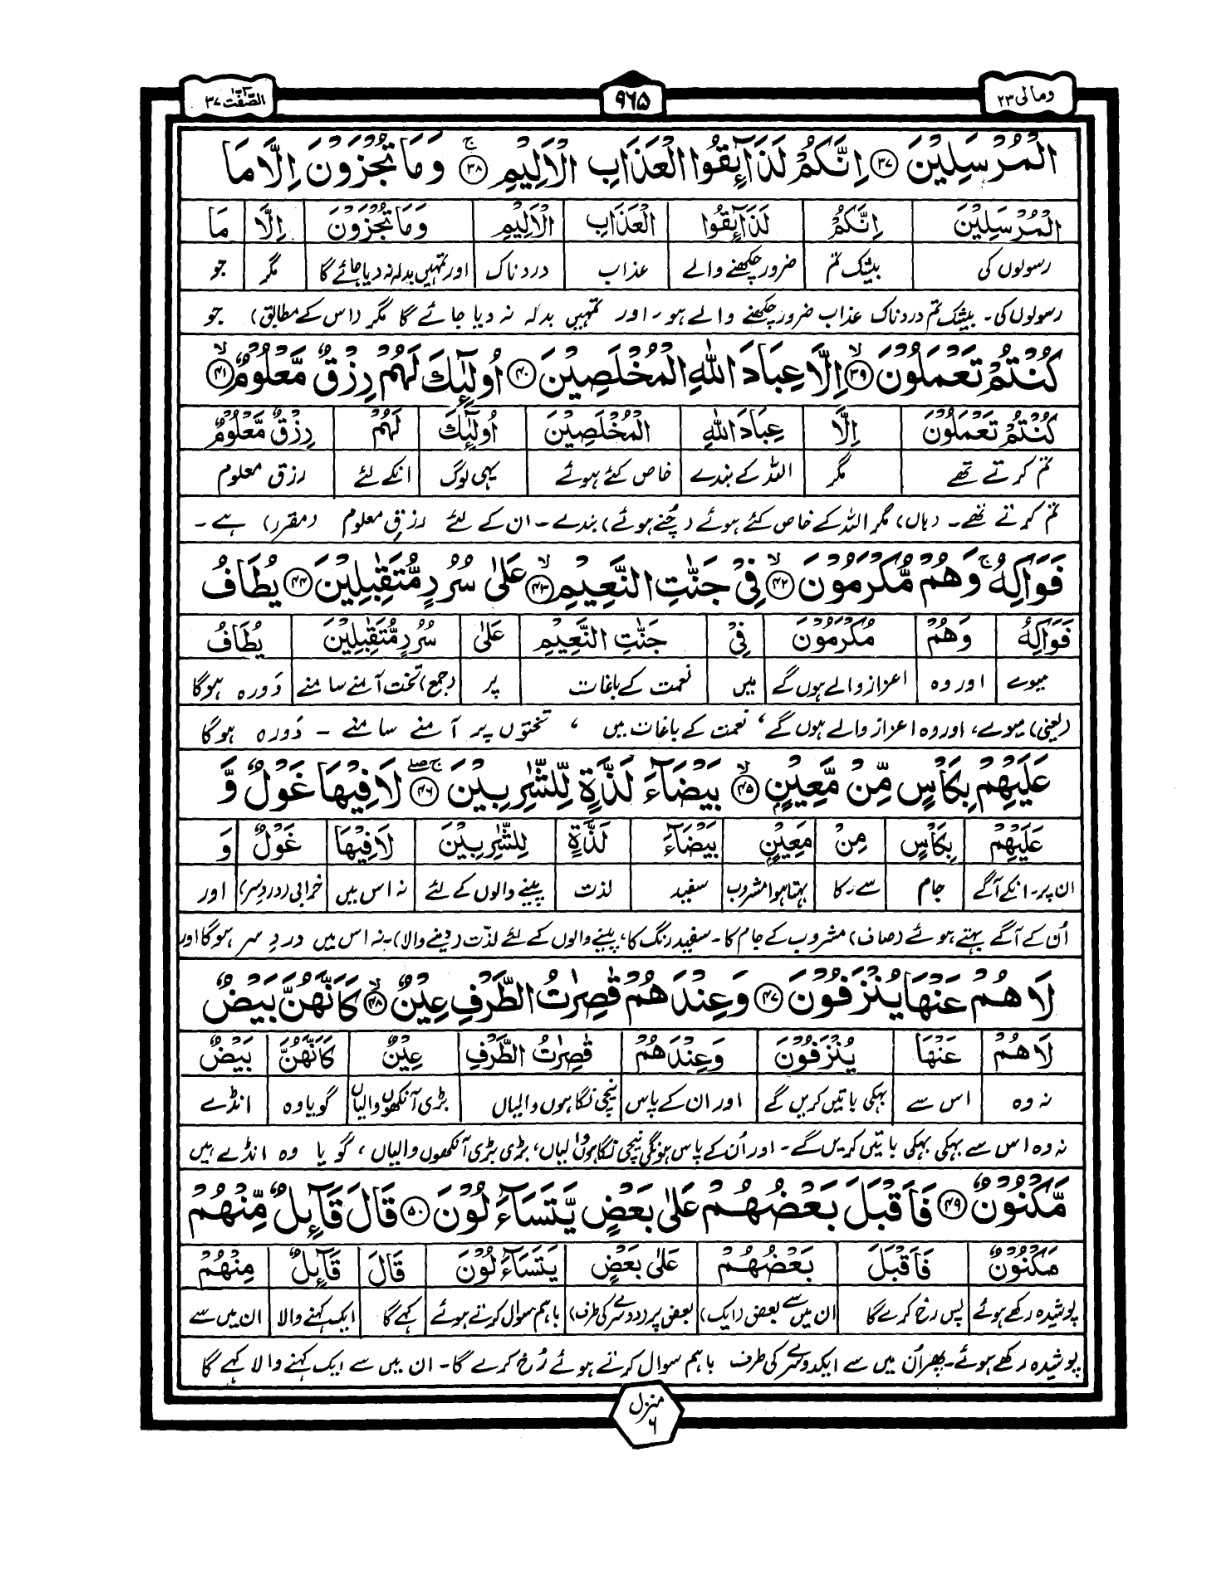 وما لی ۲۳
۹۶۵
الصّٰفّٰت ۳۷
الْمُرْسَلِیْنَ ۳۷ اِنَّكُمْ لَذَآىِٕقُوا الْعَذَابِ الْاَلِیْمِ ۳۸ ج وَمَا تُجْزَوْنَ اِلَّا مَا
الْمُرْسَلِیْنَ اِنَّكُمْ لَذَآىِٕقُوا الْعَذَابِ الْاَلِیْمِ وَمَا تُجْزَوْنَ اِلَّا مَا
رسولوں کی بیشک تم ضرور چکھنے والے عذاب دردناک اور تمہیں بدلہ نہ دیا جائے گا مگر جو
رسولوں کی۔ بیشک تم دردناک عذاب ضرور چکھنے والے ہو۔ اور تمہیں بدلہ نہ دیا جائے گا مگر (اس کے مطابق) جو
كُنْتُمْ تَعْمَلُوْنَ ۳۹ لا اِلَّا عِبَادَ اللّٰهِ الْمُخْلَصِیْنَ ۴۰ اُولٰٓىِٕكَ لَهُمْ رِزْقٌ مَّعْلُوْمٌ ۴۱ لا
كُنْتُمْ تَعْمَلُوْنَ اِلَّا عِبَادَ اللّٰهِ الْمُخْلَصِیْنَ اُولٰٓىِٕكَ لَهُمْ رِزْقٌ مَّعْلُوْمٌ
تم کرتے تھے مگر اللہ کے بندے خاص کئے ہوئے یہی لوگ انکے لئے رزق معلوم
تم کرتے تھے۔ (ہاں) مگر اللہ کے خاص کئے ہوئے (چُنے ہوئے) بندے۔ ان کے لئے رزقِ معلوم (مقرر) ہے۔
فَوَاكِهُ ج وَهُمْ مُّكْرَمُوْنَ ۴۲ لا فِیْ جَنّٰتِ النَّعِیْمِ ۴۳ لا عَلٰی سُرُرٍ مُّتَقٰبِلِیْنَ ۴۴ یُطَافُ
فَوَاكِهُ وَهُمْ مُكْرَمُوْنَ فِیْ جَنّٰتِ النَّعِیْمِ عَلٰی سُرُرٍ مُّتَقٰبِلِیْنَ یُطَافُ
میوے اور وہ اعزاز والے ہوں گے میں نعمت کے باغات پر (جمع) تخت آمنے سامنے دَورہ ہوگا
(یعنی) میوے، اور وہ اعزاز والے ہوں گے، نعمت کے باغات میں، تختوں پر آمنے سامنے۔ دَورہ ہوگا
عَلَیْهِمْ بِكَاْسٍ مِّنْ مَّعِیْنٍ ۴۵ لا بَیْضَآءَ لَذَّةٍ لِّلشّٰرِبِیْنَ ۴۶ لَا فِیْهَا غَوْلٌ وَّ
عَلَیْهِمْ بِكَاْسٍ مِنْ مَعِیْنٍ بَیْضَآءَ لَذَّةٍ لِلشّٰرِبِیْنَ لَا فِیْهَا غَوْلٌ وَ
ان پر۔ انکے آگے جام سے۔ کا بہتا ہوا مشروب سفید لذت پینے والوں کے لئے نہ اس میں خرابی (دردسر) اور
اُن کے آگے بہتے ہوئے (صاف) مشروب کے جام کا۔ سفید رنگ کا، پینے والوں کے لئے لذت (دینے والا)۔ نہ اس میں دردِ سر ہوگا اور
لَا هُمْ عَنْهَا یُنْزَفُوْنَ ۴۷ وَعِنْدَهُمْ قٰصِرٰتُ الطَّرْفِ عِیْنٌ ۴۸ لا كَاَنَّهُنَّ بَیْضٌ
لَا هُمْ عَنْهَا یُنْزَفُوْنَ وَعِنْدَهُمْ قٰصِرٰتُ الطَّرْفِ عِیْنٌ كَاَنَّهُنَّ بَیْضٌ
نہ وہ اس سے بہکی باتیں کریں گے اور ان کے پاس نیچی نگاہوں والیاں بڑی آنکھوں والیاں گویا وہ انڈے
نہ وہ اس سے بہکی بہکی باتیں کریں گے۔ اور اُن کے پاس ہونگی نیچی نگاہوں والیاں، بڑی بڑی آنکھوں والیاں، گویا وہ انڈے ہیں
مَّكْنُوْنٌ ۴۹ فَاَقْبَلَ بَعْضُهُمْ عَلٰی بَعْضٍ یَّتَسَآءَلُوْنَ ۵۰ قَالَ قَآىِٕلٌ مِّنْهُمْ
مَكْنُوْنٌ فَاَقْبَلَ بَعْضُهُمْ عَلٰی بَعْضٍ یَتَسَآءَلُوْنَ قَالَ قَآىِٕلٌ مِنْهُمْ
پوشیدہ رکھے ہوئے پس رخ کرے گا ان میں سے بعض (ایک) بعض پر (دوسرے کی طرف) باہم سوال کرتے ہوئے کہے گا ایک کہنے والا ان میں سے
پوشیدہ رکھے ہوئے۔ پھر اُن میں سے ایک دوسرے کی طرف باہم سوال کرتے ہوئے رُخ کرے گا۔ ان میں سے ایک کہنے والا کہے گا
منزل ۶